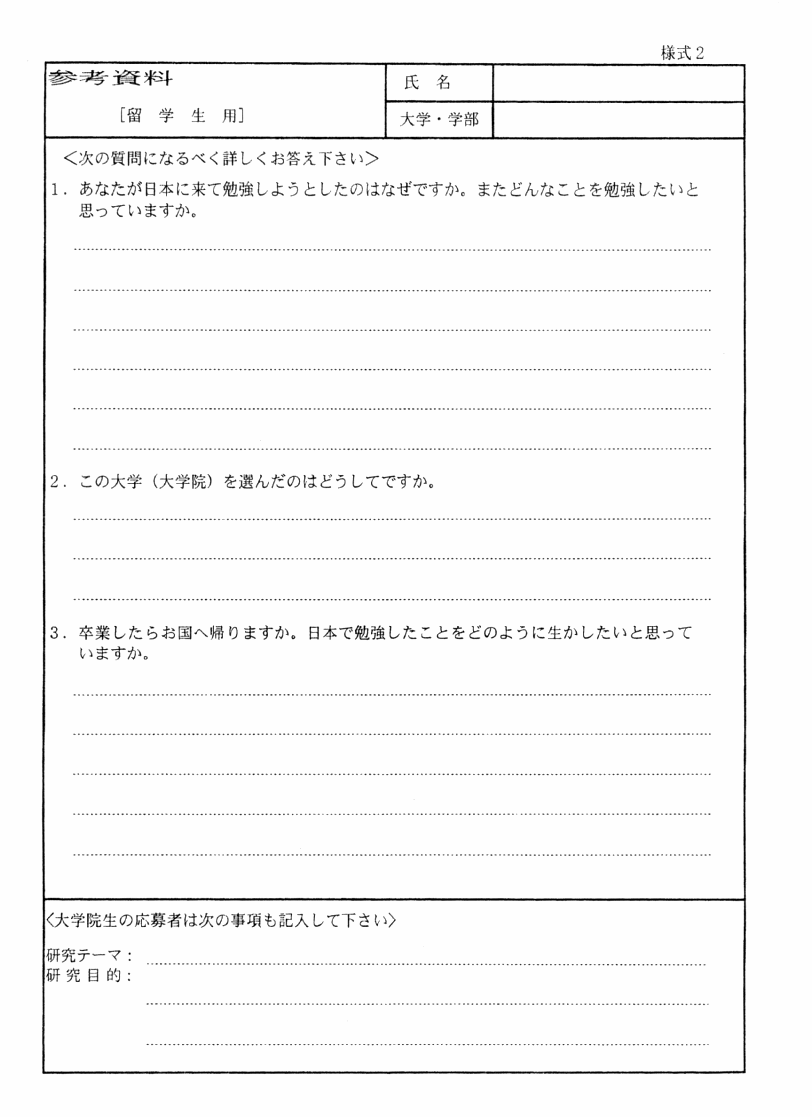 様式2
参考資料
氏 名
[留 学 生 用]
大学・学部
＜次の質問になるべく詳しくお答え下さい＞
1．あなたが日本に来て勉強しようとしたのはなぜですか。またどんなことを勉強したいと
思っていますか。
2．この大学（大学院）を選んだのはどうしてですか。
3．卒業したらお国へ帰りますか。日本で勉強したことをどのように生かしたいと思って
いますか。
〈大学院生の応募者は次の事項も記入して下さい〉
研究テーマ：
研 究 目 的：